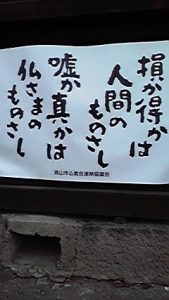 損か得かは
人間の
ものさし
嘘か真かは
仏さまの
ものさし
高山市仏教会連絡協議会